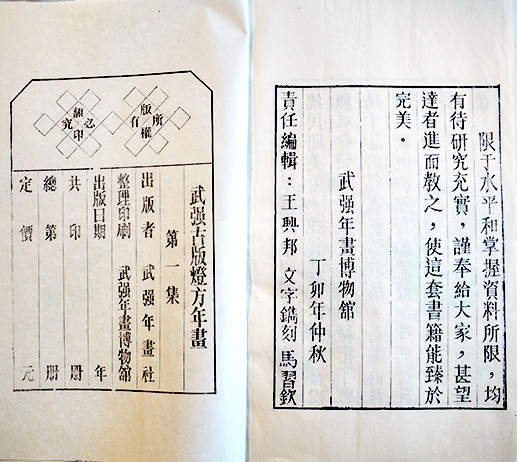 限于水平和掌握資料所限，均
有待研究充實，謹奉給大家，甚望
達者進而教之，使這套書籍能臻於
完美．
武强年畫博物舘
丁卯年仲秋
責任編輯：王興邦 文字鐫刻 馬習欽
版權所有
翻印必究
武强古版燈方年畫
第一集
出版者 武强年畫社
整理印刷 武强年畫博物舘
出版日期 年
共印 册
總第 册
定價 元